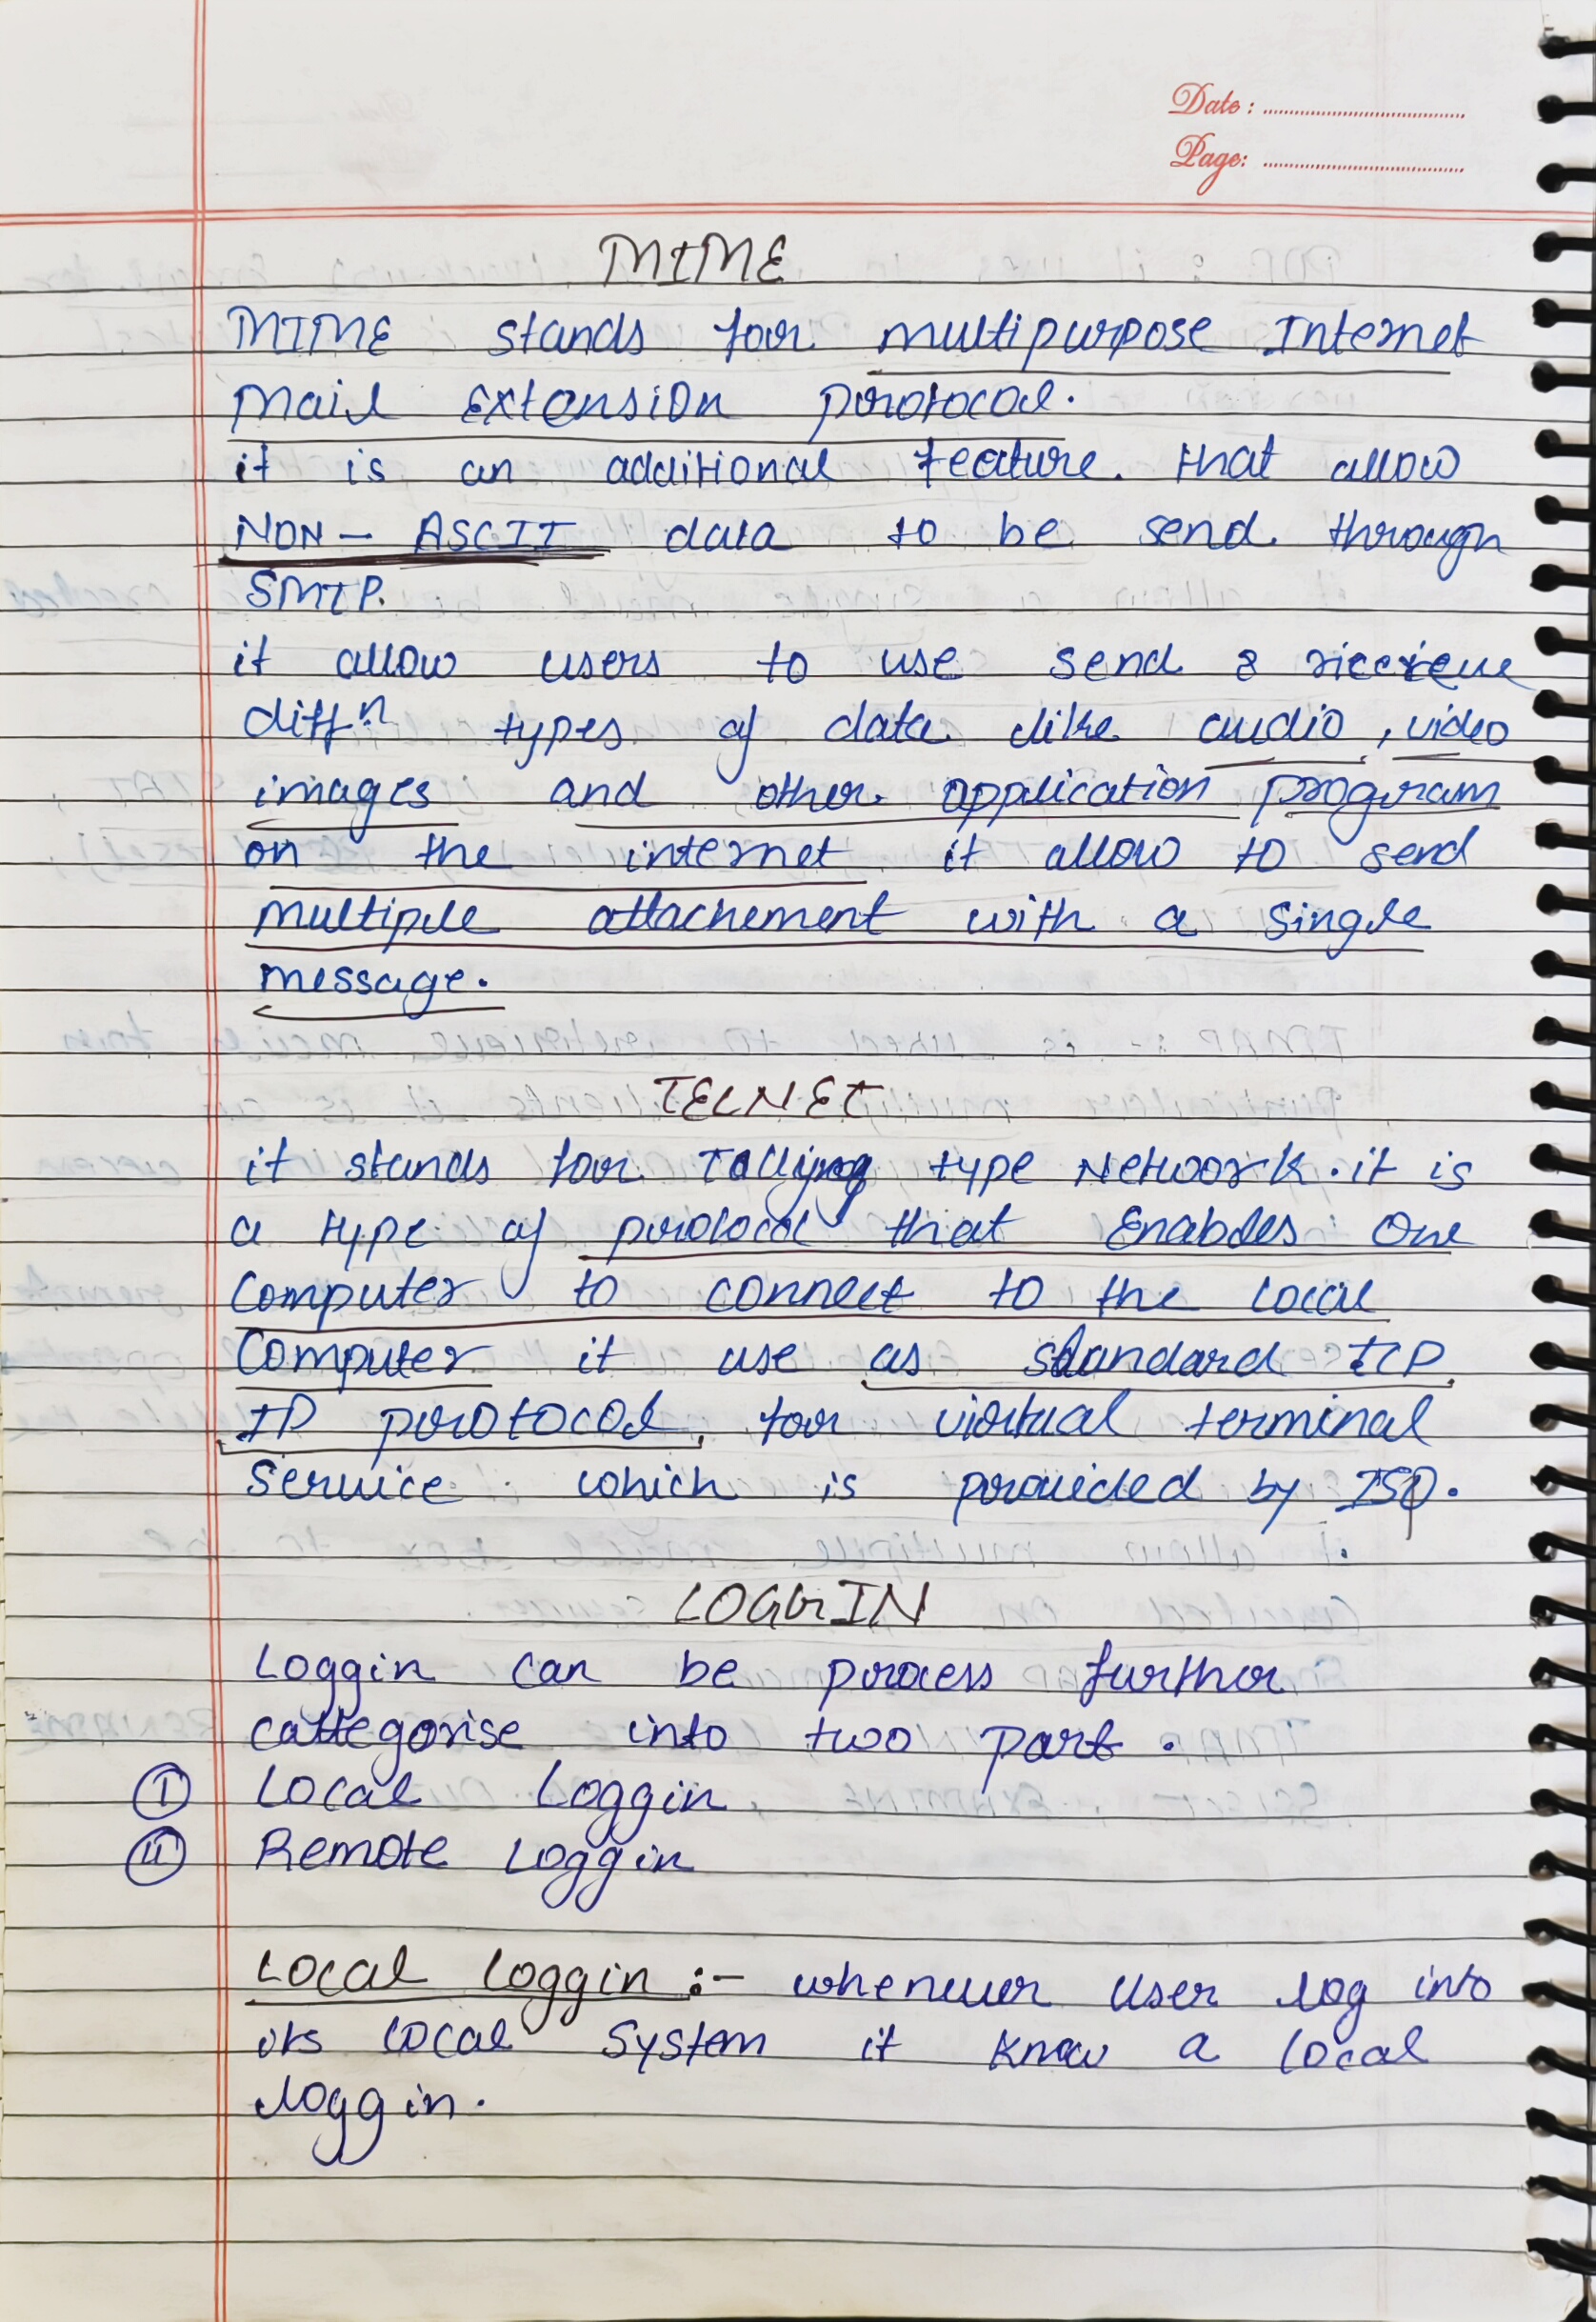 Date :
Page:
MIME
MIME stands for multipurpose Internet
Mail Extension protocol.
it is an additional feature. that allow
NON - ASCII data to be send through
SMTP.
it allow users to use send & riceieve
diffn types of data like audio , video
images and other application program
on the internet it allow to send
multiple attachement with a single
message.
TELNET
it stands for type Network. it is
a type of protocol that Enables One
Computer to connect to the local
Computer it use as standard TCP
IP protocol, for virtual terminal
service which is provided by ISP.
LOGGIN
Loggin can be process further
cattegorise into two part .
I Local Loggin
II Remote Loggin
Local Loggin :- whenever User log into
its local System it know a local
loggin.